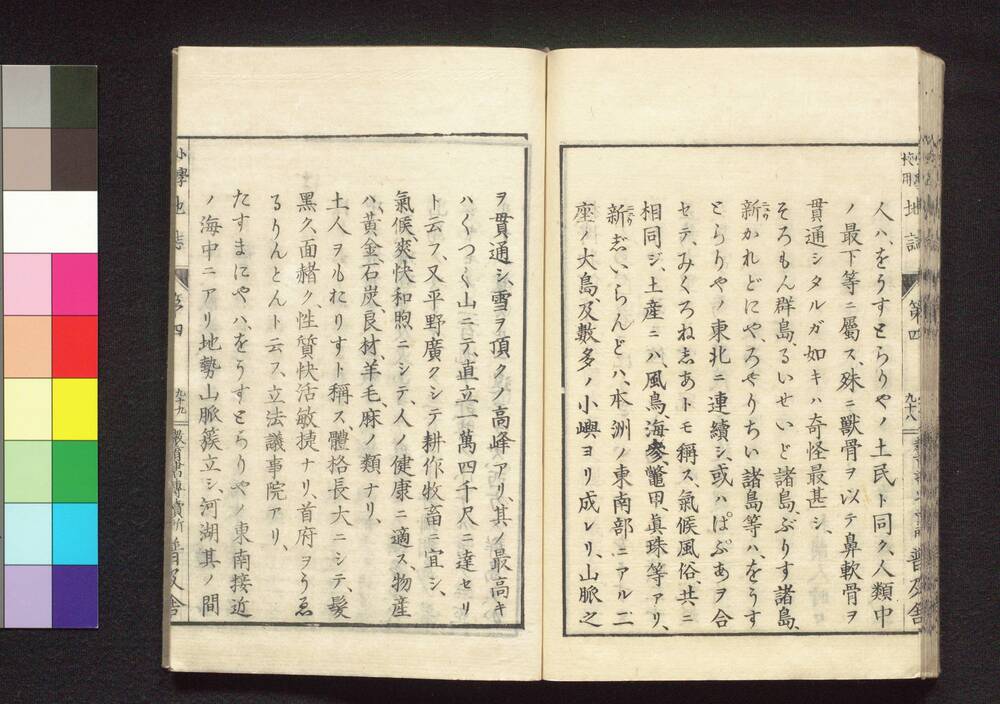 人ハ、をうすとらりやノ土民ト同ク、人類中
ノ最下等ニ屬ス、殊ニ獸骨ヲ以テ鼻軟骨ヲ
貫通シタルガ如キハ奇怪最甚シ、
そろもん群島、るいせいど諸島、ぶりす諸島、
新かれどにや、ろやりちい諸島等ハ、をうす
とらりやノ東北ニ連續シ、或ハぱぷあヲ合
セテ、みくろねしあトモ稱ス、氣候風俗、共ニ
相同ジ、土産ニハ、風鳥、海參、鼈甲、眞珠等アリ、
新ぜいらんどハ、本洲ノ東南部ニアル二
座ノ大島、及數多ノ小嶼ヨリ成レリ、山脈之
ヲ貫通シ、雪ヲ頂クノ高峰アリ、其ノ最高キ
ハくつく山ニテ、直立一萬四千尺ニ達セリ
ト云フ、又平野廣クシテ耕作牧畜ニ宜シ、
氣候爽快和煦ニシテ、人ノ健康ニ適ス、物産
ハ、黄金、石炭、良材、羊毛、麻ノ類ナリ、
土人ヲもたりすト稱ス、體格長大ニシテ、髮
黑ク、面赭ク、性質快活敏捷ナリ、首府ヲうゑ
るりんとんト云フ、立法議事院アリ、
たすまにやハ、をうすとらりやノ東南接近
ノ海中ニアリ地勢山脈簇立シ、河湖其ノ間
小學地誌 第四 九十九
校用 地誌 第四 九十八 普及舍